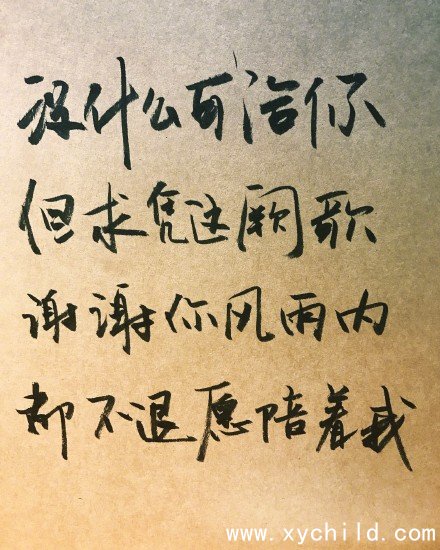 没什么可给你
但求凭这阙歌
谢谢你风雨内
都不退愿陪着我
www.xychild.com